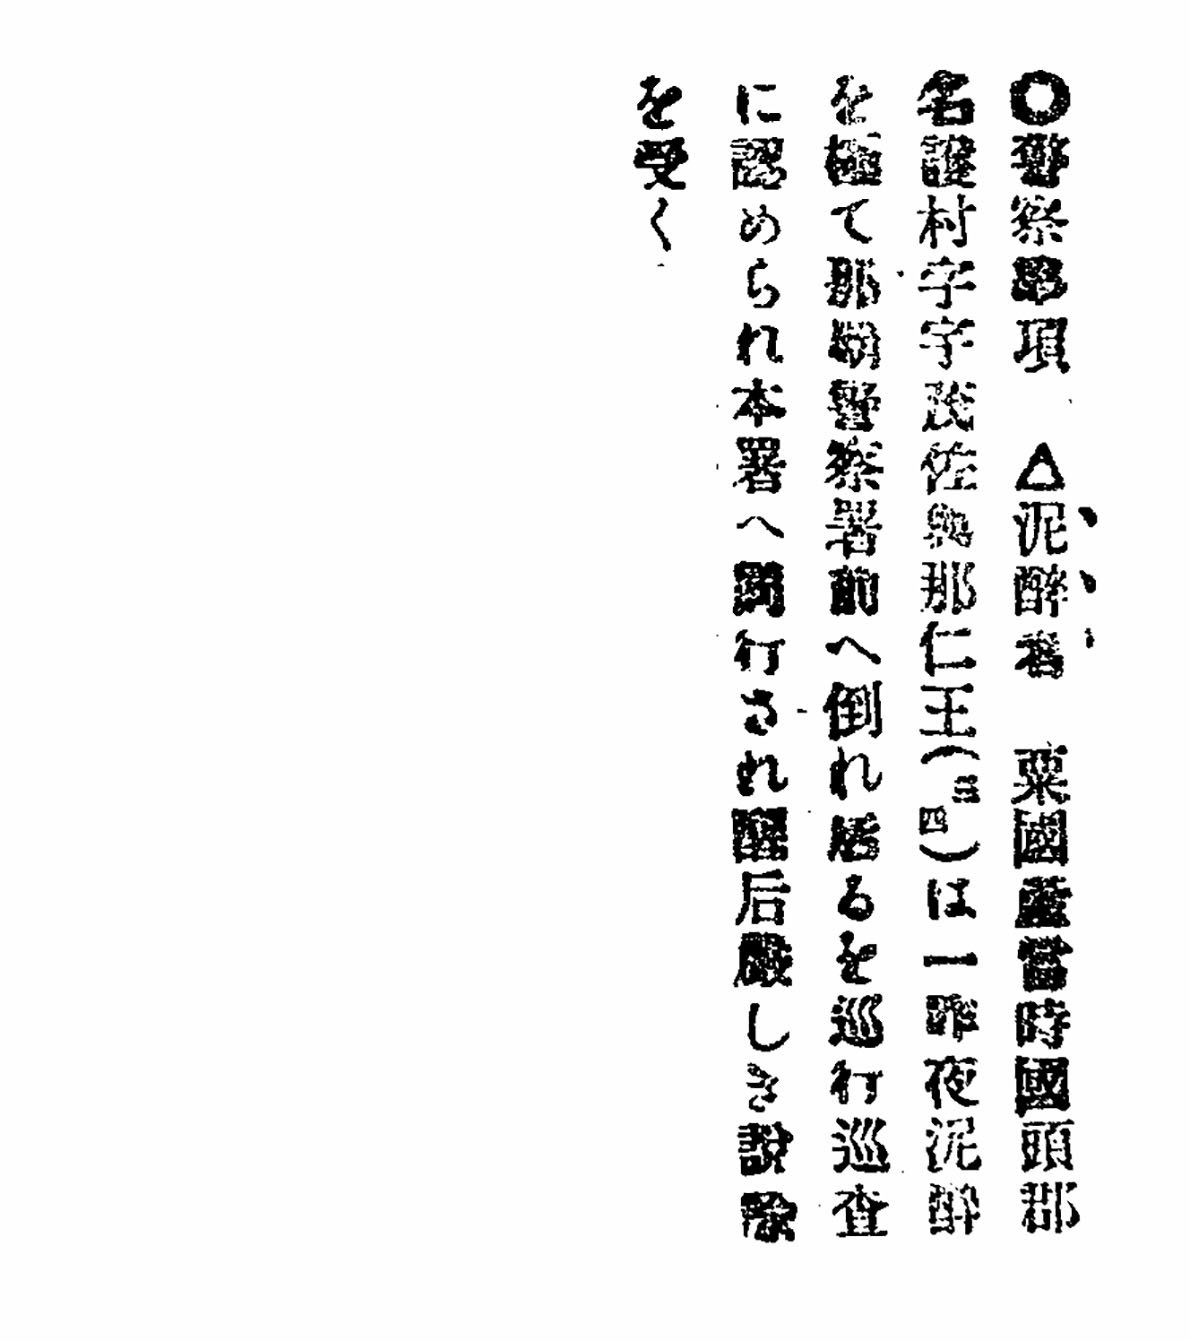 ◯警察事項 △泥醉者 粟國產當時國頭郡
名護村字字茂佐與那仁王(三四)は一昨夜泥醉
を極て那覇警察署前へ倒れ居るを巡行巡査
に認められ本署へ行され醒后嚴しき説諭
を受く